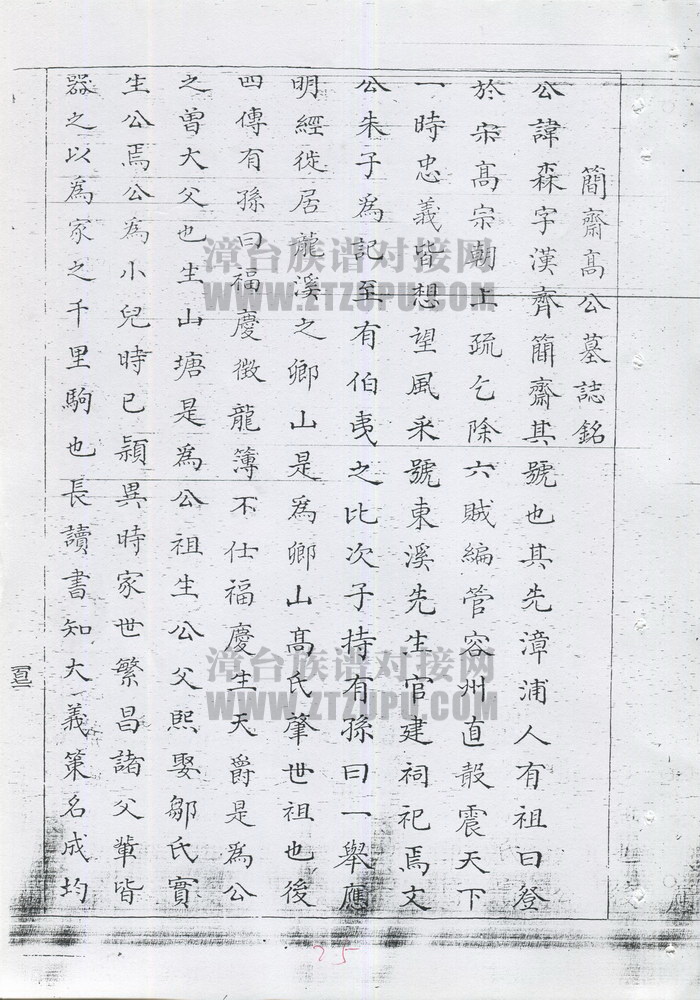 簡齋高公墓誌銘
公諱森字漢齊簡齋其號也其先漳浦人有祖曰登
於宋高宗朝上疏乞除六賊編管容州直聲震天下
一時忠義皆想望風采號東溪先生官建祠祀焉文
公朱子為記至有伯夷之比次子持有孫曰一舉應
明經徙居龍溪之鄉山是為鄉山高氏肇世祖也後
四傳有孫曰福慶徵龍簿不仕福慶生天爵是為公
之曾大父也生山塘是為公祖生公父熙娶鄒氏實
生公焉公為小兒時已頴異時家世繁昌諸父輩皆
器之以為家之千里駒也長讀書知大義策名成均
漳台族谱对接网
WWW.ZTZUPU.COM
漳台族谱对接网
WWW.ZTZUPU.COM
25